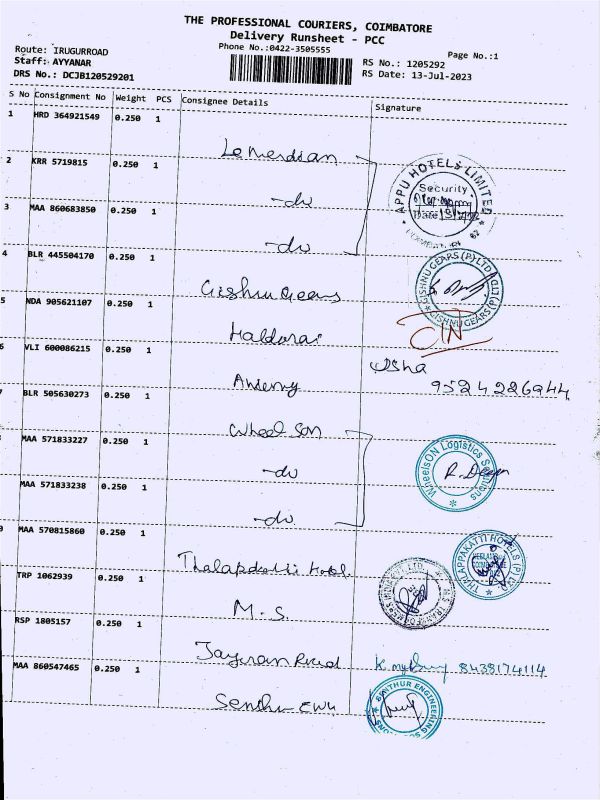 THE PROFESSIONAL COURIERS, COIMBATORE
Delivery Runsheet - PCC
Phone No.:0422-3505555
Page No.:1
Route: IRUGURROAD
Staff: AYYANAR
DRS No.: DCJB120529201
RS No.: 1205292
RS Date: 13-Jul-2023
S No Consignment No Weight PCS Consignee Details Signature
1 HRD 364921549 0.250 1
2 KRR 5719815 0.250 1
-do
3 MAA 860683850 0.250 1
-do
APPU HOTELS LIMITED
Security
Date
4 BLR 445504170 0.250 1
Gishnu Gears
GISHNU GEARS (P) LTD GISHNU GEARS (P) LTD
5 NDA 905621107 0.250 1
Haldorai
6 VLI 600086215 0.250 1
Antony
Usha
9524226944
BLR 505630273 0.250 1
Wheel Son
MAA 571833227 0.250 1
-do
WheelsON Logistics Solutions
MAA 571833238 0.250 1
-do
MAA 570815860 0.250 1
Thalapakatti Hotel
THALAPPAKATTI HOTELS (P) LTD
TRP 1062939 0.250 1
M.S.
RSP 1805157 0.250 1
Jayaram 8438174114
MAA 860547465 0.250 1
Senthur
SENTHUR ENGINEERING